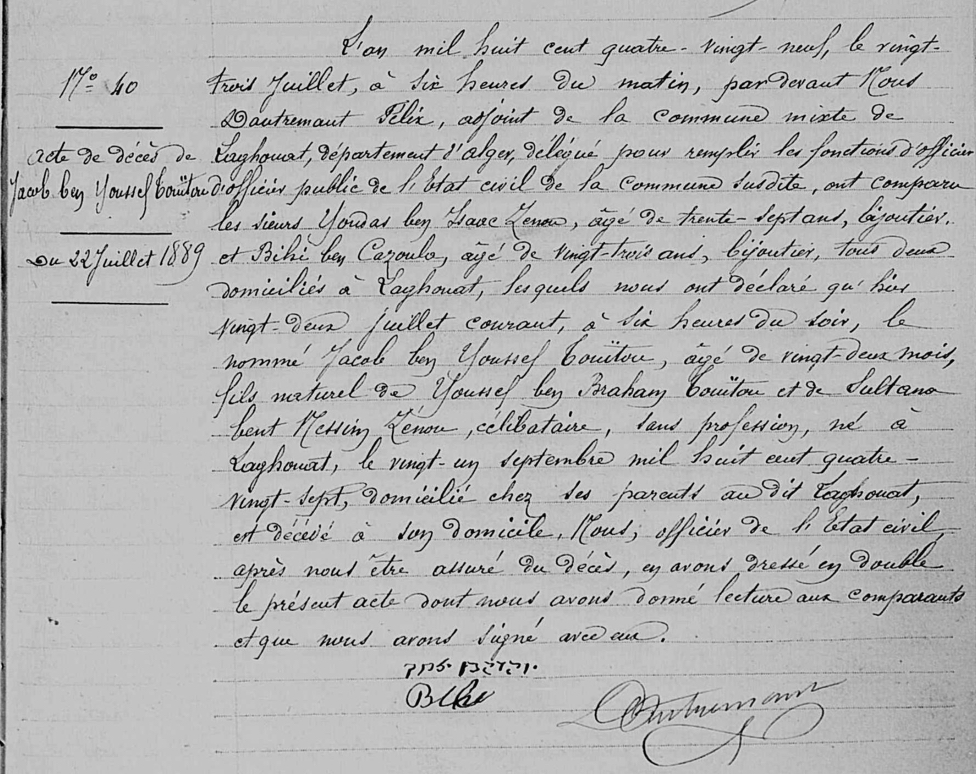 N° 40
Acte de décès de
Jacob ben Youssef Touïtou
Du 22 Juillet 1889
L'an mil huit cent quatre-vingt-neuf, le vingt-
trois Juillet, à six heures du matin, par devant Nous
Dautremant Félix, adjoint de la commune mixte de
Laghouat, département d'Alger, délégué pour remplir les fonctions d'officier
d'officier public de l'Etat civil de la commune susdite, ont comparu
les sieurs Youdas ben Isaac Zenou, âgé de trente-sept ans, bijoutier,
et Bihé ben Cazoula, âgé de vingt-trois ans, bijoutier, tous deux
domiciliés à Laghouat, lesquels nous ont déclaré qu'hier
vingt-deux Juillet courant, à six heures du soir, le
nommé Jacob ben Youssef Touïtou, âgé de vingt-deux mois,
fils naturel de Youssef ben Braham Touïtou et de Sultana
bent Nessim Zénou, célibataire, sans profession, né à
Laghouat, le vingt-un septembre mil huit cent quatre-
vingt-sept, domicilié chez ses parents au dit Laghouat,
est décédé à son domicile. Nous, officier de l'Etat civil,
après nous être assuré du décès, en avons dressé en double
le présent acte dont nous avons donné lecture aux comparants
et que nous avons signé avec eux.
Dautremant